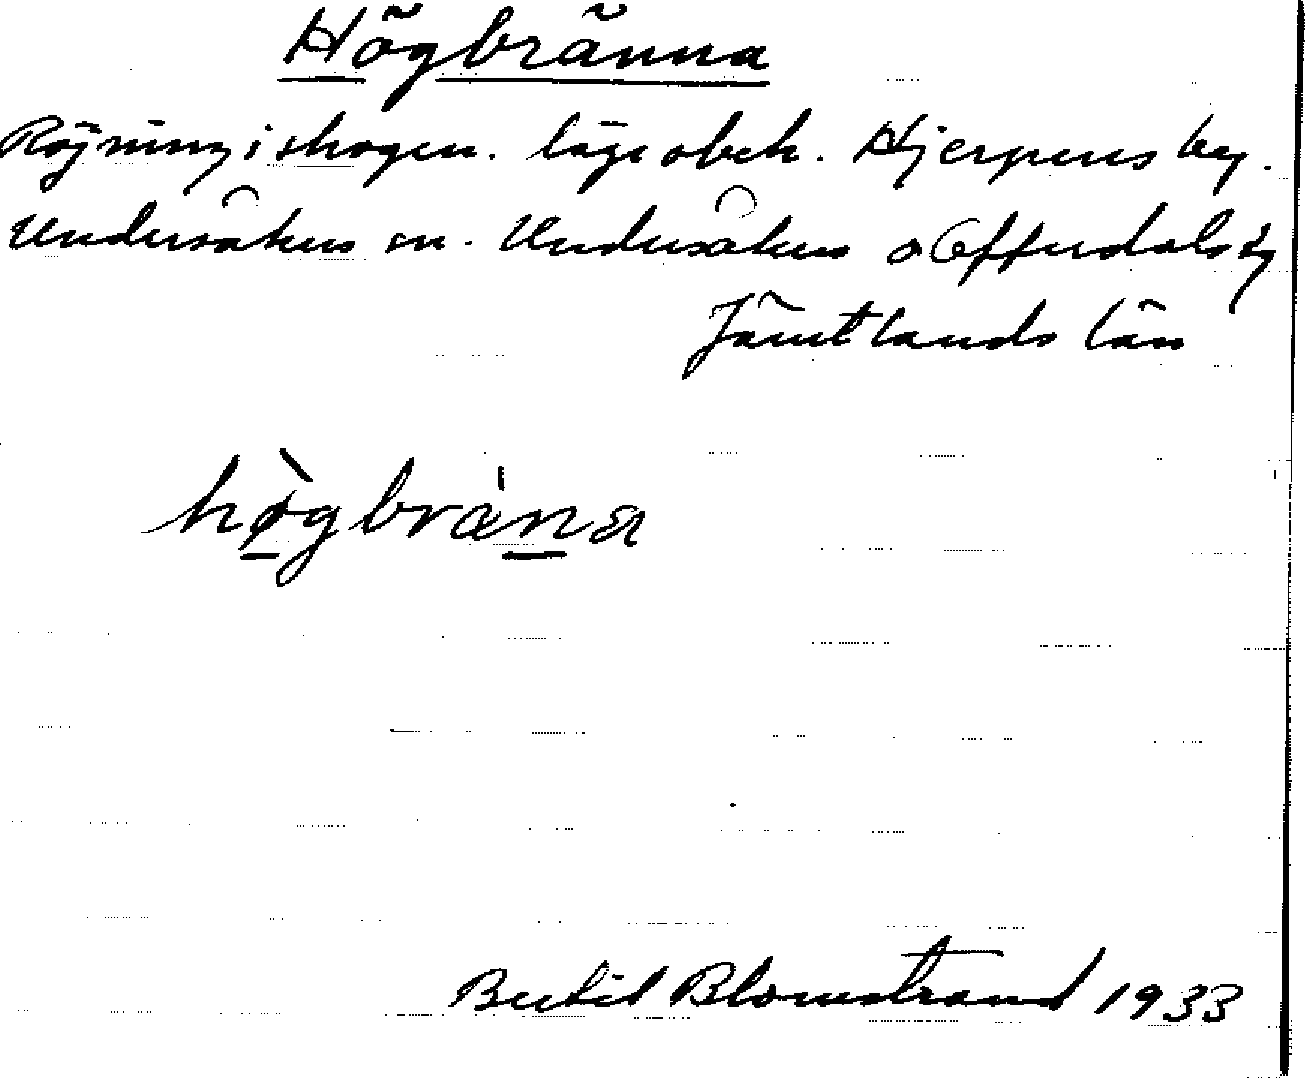 Högbränna
Röjning i skogen. läge obek. Hjerpens by.
Undersåkers sn. Undersåkers o Offerdals tg
Jämtlands län
hø̀gbræ̍na
Bertil Blomstrand 1933